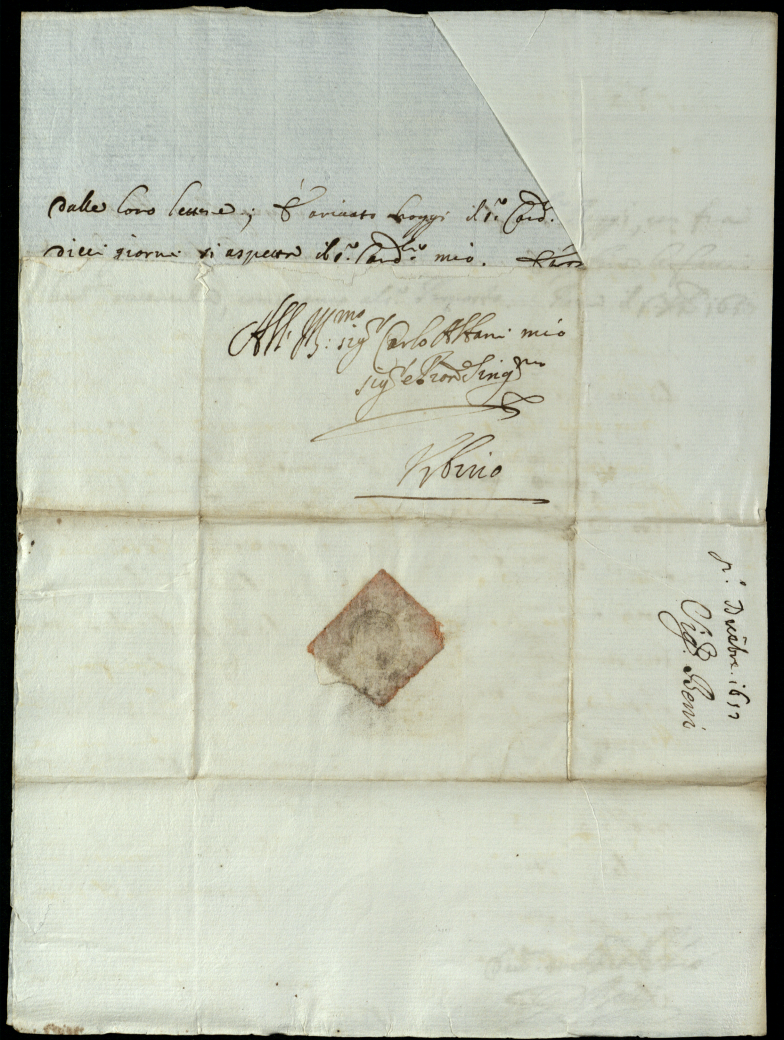 dalle loro lettere; È arivato hoggi il s.r Card.
dieci giorni si aspetta il s.r Card.le mio.
All' Ill.mo sig.r Carlo Albani mio
sig.r e Pron Sing.mo
Urbino
p.o Dicẽbre. 1652
Sig.r Beni